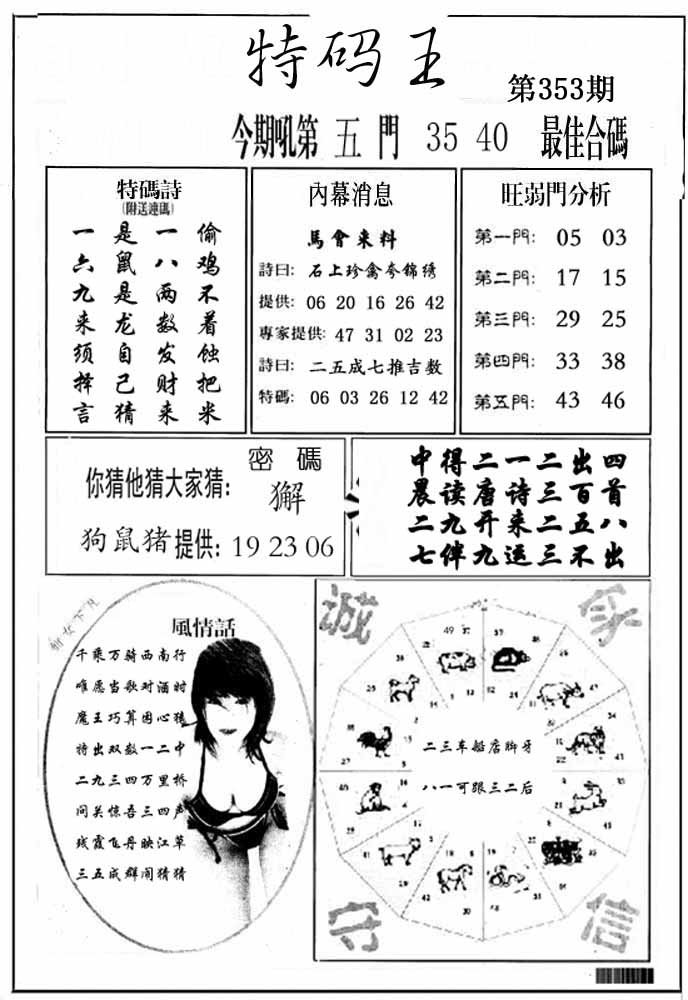 特码王
第353期
今期吼第 五 門 35 40 最佳合碼
特碼詩
(附送連碼)
一 是 一 偷
六 鼠 八 鸡
九 是 两 不
来 龙 数 着
须 自 发 蚀
择 己 财 把
言 猜 来 米
內幕消息
馬會来料
詩曰: 石上珍禽夸锦绣
提供: 06 20 16 26 42
專家提供: 47 31 02 23
詩曰: 二五成七推吉数
特碼: 06 03 26 12 42
旺弱門分析
第一門: 05 03
第二門: 17 15
第三門: 29 25
第四門: 33 38
第五門: 43 46
密 碼
你猜他猜大家猜: 獬
狗鼠猪 提供: 19 23 06
中得二一二出四
晨读唐诗三百首
二九开来二五八
七伴九运三不出
風情話
千乘万骑西南行
唯愿当歌对酒时
魔王巧算困心猿
特出双数一二中
二九三四万里桥
间关惊吾三四声
残霞飞丹映江草
三五成群闹猜猜
诚
家
二三车船店脚牙
八一可跟三二后
守
信